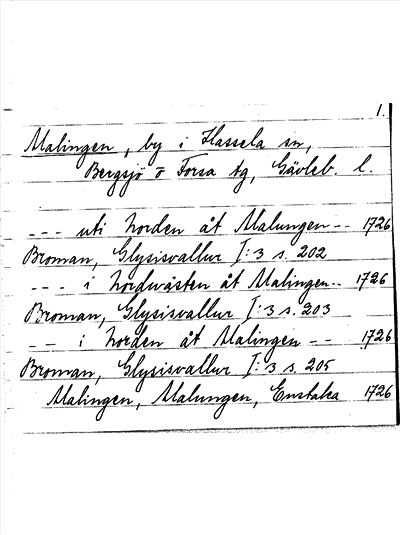 1.
Malingen, by i Hassela sn,
Bergsjö o Forsa tg, Gävleb. l.
--- uti Norden åt Malungen -- 1726
Broman, Glysisvallur I:3 s. 202
--- i Nordwästen åt Malingen.. 1726
Broman, Glysisvallur I:3 s. 203
-- i Norden åt Malingen -- 1726
Broman, Glysisvallur I:3 s. 205
Malingen, Malungen, Enstaka 1726